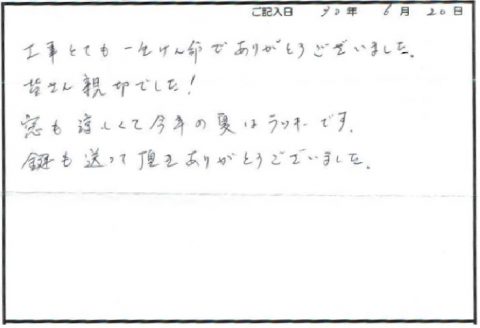 ご記入日 30年 6月 20日
工事とても一生けん命でありがとうございました。
皆さん親切でした!
窓も涼しくて今年の夏はラッキーです。
鍵も送って頂きありがとうございました。